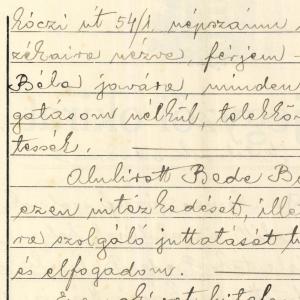 kóczi út 54/1. népszámu
zékaira nézve, férjem
Béla javára, minden
gatásom nélkül, telekkö-
tessék.
Alulirott Bede B
ezen intézkedését, ille
ra szolgáló juttatását
és elfogadom.